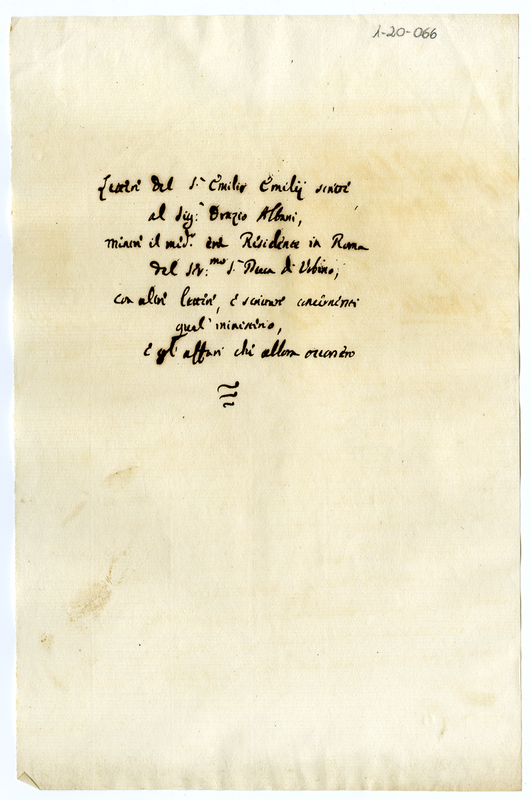 1-20-066
Lettere del S.r Emilio Emilij scritte
al Sig.r Orazio Albani,
mentre il med.o era Residente in Roma
del Ser.mo S.r Duca di Urbino,
con altre lettere, e scritture concernenti
quel ministerio,
e gl' affari che allora occorsero